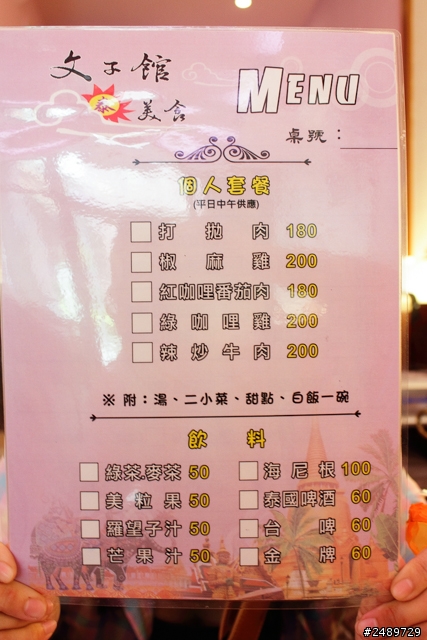 文子館
泰 美食
MENU
桌號：
個人套餐
(平日中午供應)
打拋肉 180
椒麻雞 200
紅咖哩番茄肉 180
綠咖哩雞 200
辣炒牛肉 200
※ 附：湯、二小菜、甜點、白飯一碗
飲料
綠茶.麥茶 50
海尼根 100
美粒果 50
泰國啤酒 60
羅望子汁 50
台啤 60
芒果汁 50
金牌 60
#2489729